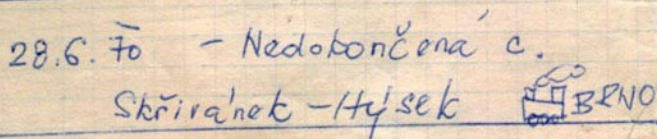 28.6.70 - Nedokončená c.
Skřivánek - Hýsek BRNO